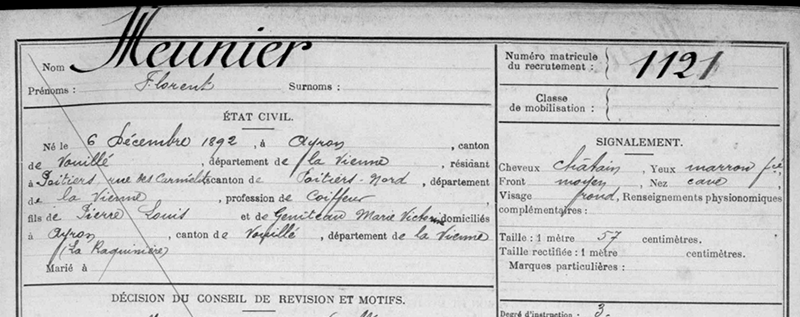 Nom Meunier
Prénoms : Florent Surnoms :
Numéro matricule du recrutement : 1121
Classe de mobilisation :
ÉTAT CIVIL.
Né le 6 Décembre 1892, à Ayron, canton
de Vouillé, département de la Vienne, résidant
à Poitiers rue des Carmélites canton de Poitiers-Nord, département
de la Vienne, profession de Coiffeur
fils de Pierre Louis et de Geniteau Marie domiciliés
à Ayron, canton de Vouillé, département de la Vienne
(La Raquinière)
Marié à
DÉCISION DU CONSEIL DE REVISION ET MOTIFS.
SIGNALEMENT.
Cheveux châtain, Yeux marron
Front moyen, Nez cave
Visage rond, Renseignements physionomiques
complémentaires :
Taille : 1 mètre 57 centimètres.
Taille rectifiée : 1 mètre centimètres.
Marques particulières :
Degré d'instruction : 3.